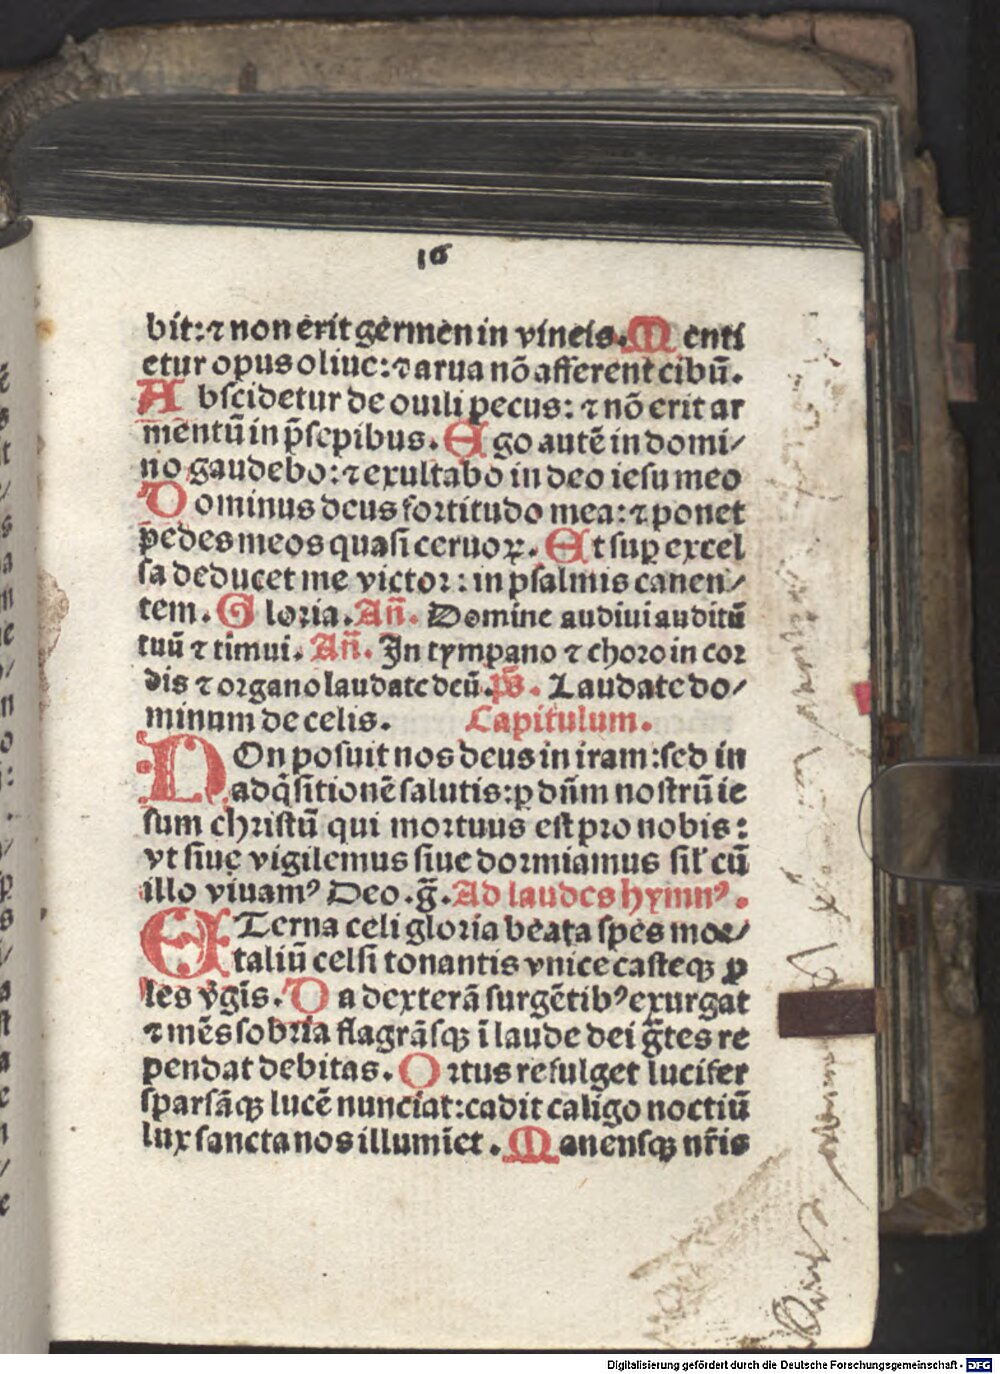 16
bit: ⁊ non erit germen in vineis. Menti
etur opus oliue: ⁊ arua nō afferent cibū.
Abscidetur de ouili pecus: ⁊ nō erit ar
mentū in p̄sepibus. Ego autē in domi/
no gaudebo: ⁊ exultabo in deo iesu meo
Dominus deus fortitudo mea: ⁊ ponet
pedes meos quasi ceruoꝝ. Et suꝑ excel
sa deducet me victor: in psalmis canen/
tem. Gloria. Añ. Domine audiui auditū
tuū ⁊ timui. Añ. In tympano ⁊ choro in cor
dis ⁊ organo laudate deū. p̄s. Laudate do/
minum de celis. Capitulum.
NOn posuit nos deus in iram: sed in
adq̄sitionē salutis: ꝑ dn̄m nostrū ie
sum christū qui mortuus est pro nobis:
vt siue vigilemus siue dormiamus sil' cū
illo viuamꝰ Deo .ḡ. Ad laudes hymnꝰ.
ETerna celi gloria beata spes mor/
taliū celsi tonantis vnice casteqꝫ ꝓ
les v̄gis. Da dexterā surgētibꝰ exurgat
⁊ mēs sobria flagrāsqꝫ ī laude dei ḡtes re
pendat debitas. Ortus refulget lucifer
sparsāqꝫ lucē nunciat: cadit caligo noctiū
lux sancta nos illumīet. Manensqꝫ nr̄is
Digitalisierung gefördert durch die Deutsche Forschungsgemeinschaft - DFG